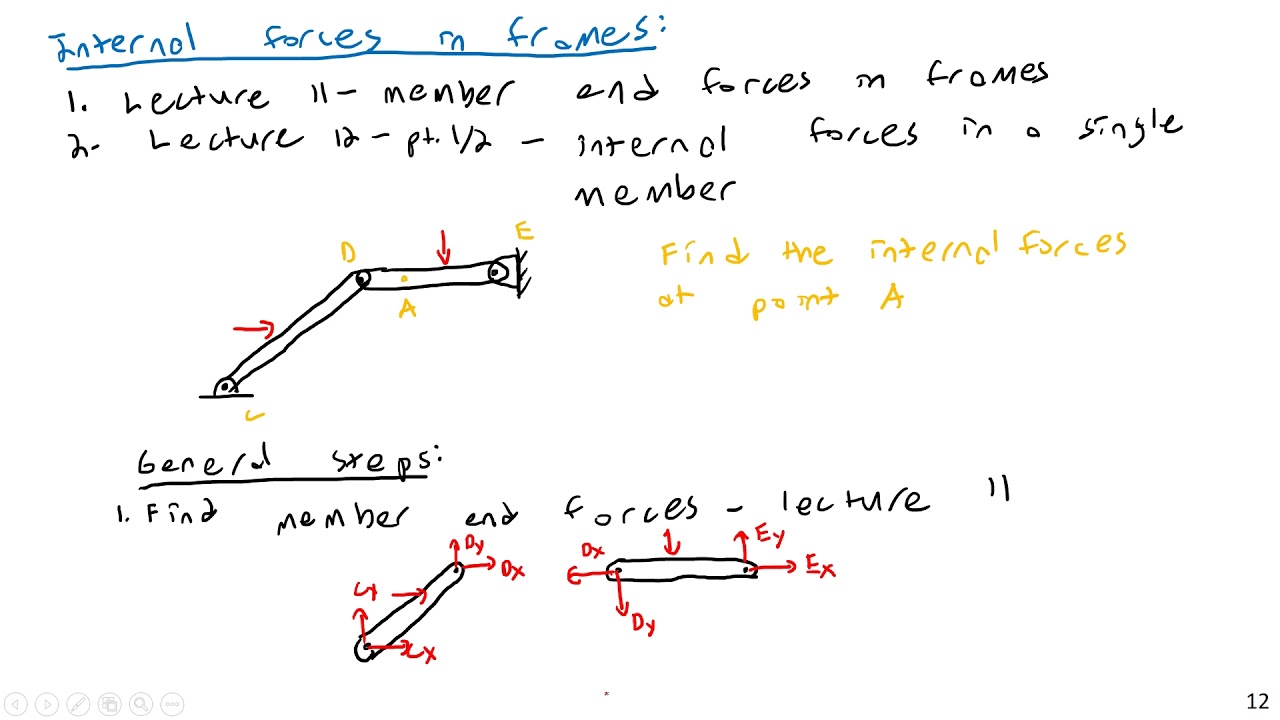 Internal forces in frames:
1. Lecture 11 - member end forces in frames
2. Lecture 12 - pt. 1/2 - internal forces in a single
member
D
E
A
C
Find the internal forces
at point A
General steps:
1. Find member end forces - lecture 11
Dy
Dx
Cy
Cx
Dx
Dy
Ey
Ex
12